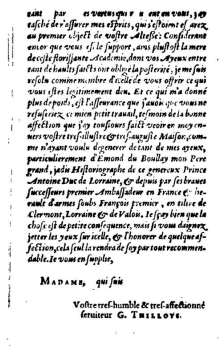 tant par vertus qui sont en vous, j'ay
tasché de r'asseurer mes esprits, qui s'estonnoient
au premier object de vostre Altesse: Considerant
encor que vous estes le support, ains plustost la mere
de ceste florissante Academie, dont vos Ayeux entre
tant de hautsfaicts ont obligé la posterité, je me suis
resolu comme membre d'icelle de vous offrir ce qui
vous est legitimement deu. Et ce qui m'a donné
plus de poids, est l'asseurance que j'avois que vous ne
refuseriez ce mien petit travail, tesmoin de la bonne
affection que j'ay tousjours voulu averer moy
envers vostre tres-illustre & tres-auguste Maison, comme
n'ayant voulu degenerer de tant de mes ayeux,
particulierement d'Emond du Boullay mon Pere
grand, jadis Historiographe de ce genereux Prince
Antoine Duc de Lorraine, & depuis par ses braves
successeurs premier Ambassadeur en France & he-
raud d'armes soubs François premier, en tiltre de
Clermont, Lorraine & de Valois. Je sçay bien que la
chose est de petite consequence, mais si vous daignez
jetter les yeux sur icelle, & l'honorer de quelque af-
fection, cela seul la rendra de soy par tout recommen-
dable. Je vous en supplie,
MADAME, qui suis
Vostre tres-humble & tres-affectionné
serviteur G. THILLOYS.